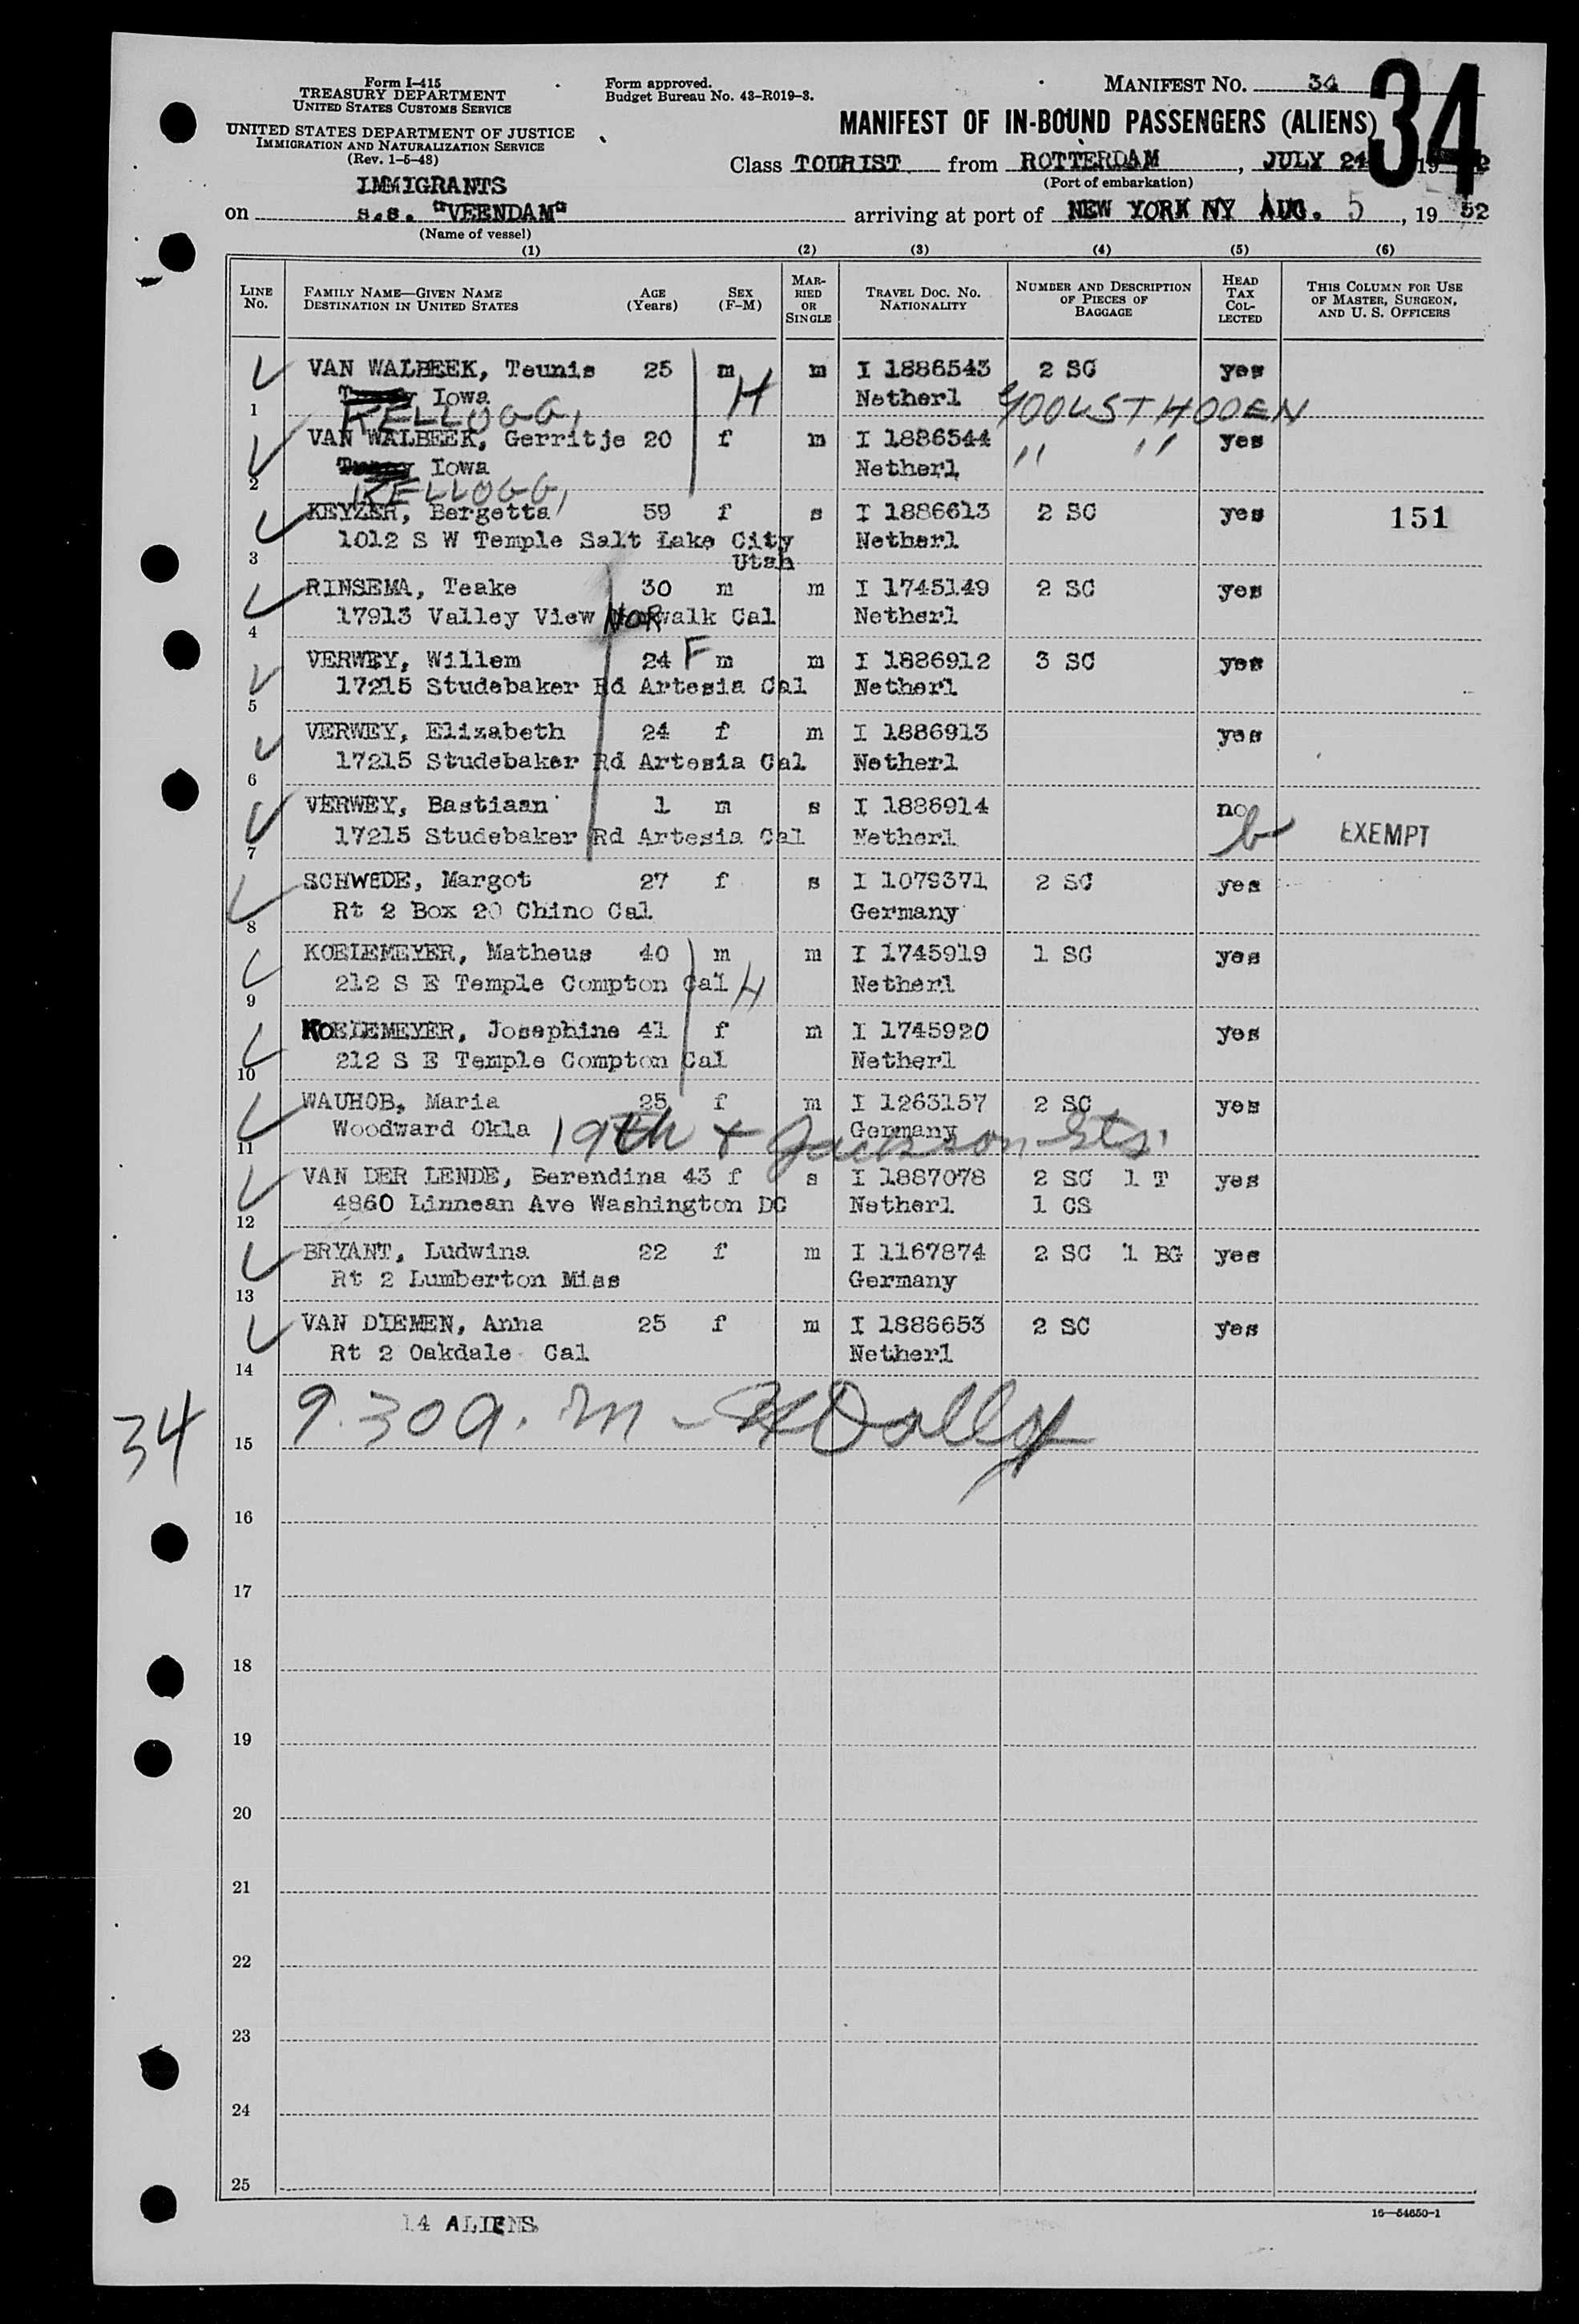 Form I-415
TREASURY DEPARTMENT
UNITED STATES CUSTOMS SERVICE
UNITED STATES DEPARTMENT OF JUSTICE
IMMIGRATION AND NATURALIZATION SERVICE
(Rev. 1-5-48)
Form approved.
Budget Bureau No. 43-R019-3.
MANIFEST NO. 34
34
MANIFEST OF IN-BOUND PASSENGERS (ALIENS)
Class TOURIST from ROTTERDAM, JULY 24 19
(Port of embarkation)
IMMIGRANTS
on s.s. "VEENDAM" arriving at port of NEW YORK NY AUG. 5, 19 52
(Name of vessel)
(1) (2) (3) (4) (5) (6)
LINE No. FAMILY NAME—GIVEN NAME DESTINATION IN UNITED STATES AGE (Years) SEX (F-M) MARRIED OR SINGLE TRAVEL DOC. NO. NATIONALITY NUMBER AND DESCRIPTION OF PIECES OF BAGGAGE HEAD TAX COLLECTED THIS COLUMN FOR USE OF MASTER, SURGEON, AND U. S. OFFICERS
VAN WALBEEK, Teunis 25 m m I 1886543 2 SC yes
Iowa H Netherl
1 KELLOGG,
VAN WALBEEK, Gerritje 20 f m I 1886544 " " yes
Iowa Netherl
2 KELLOGG,
KEYZER, Bergetta 59 f s I 1886613 2 SC yes 151
1012 S W Temple Salt Lake City Netherl
3 Utah
RINSEMA, Teake 30 m m I 1745149 2 SC yes
4 17913 Valley View NORwalk Cal Netherl
VERWEY, Willem 24 F m m I 1886912 3 SC yes
5 17215 Studebaker Rd Artesia Cal Netherl
VERWEY, Elizabeth 24 f m I 1886913 yes
6 17215 Studebaker Rd Artesia Cal Netherl
VERWEY, Bastiaan 1 m s I 1886914 no
7 17215 Studebaker Rd Artesia Cal Netherl EXEMPT
SCHWEDE, Margot 27 f s I 1079371 2 SC yes
8 Rt 2 Box 20 Chino Cal Germany
KOELEMEYER, Matheus 40 m m I 1745919 1 SC yes
9 212 S E Temple Compton Cal H Netherl
KOELEMEYER, Josephine 41 f m I 1745920 yes
10 212 S E Temple Compton Cal Netherl
WAUHOB, Maria 25 f m I 1263157 2 SC yes
11 Woodward Okla 19th & Jackson Sts. Germany
VAN DER LENDE, Berendina 43 f s I 1887078 2 SC 1 T yes
12 4860 Linnean Ave Washington DC Netherl 1 CS
BRYANT, Ludwina 22 f m I 1167874 2 SC 1 BG yes
13 Rt 2 Lumberton Miss Germany
VAN DIEMEN, Anna 25 f m I 1886653 2 SC yes
14 Rt 2 Oakdale Cal Netherl
34
15 9.30 a.m -
16
17
18
19
20
21
22
23
24
25
14 ALIENS
16—54650-1